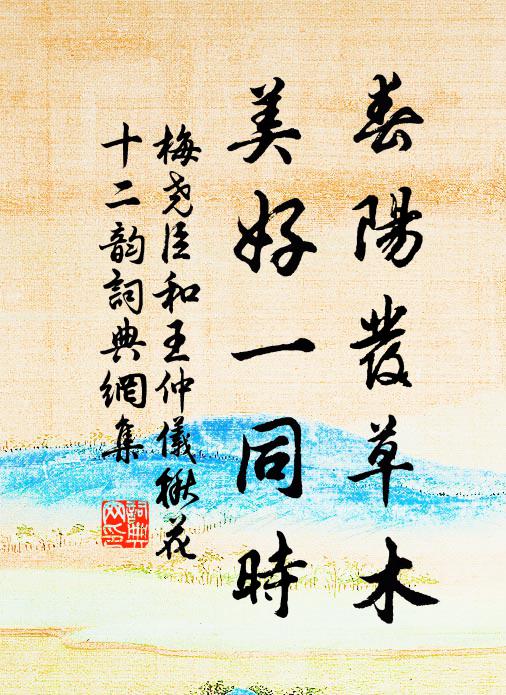 春陽發草木
美好一同時
梅堯臣和王仲儀楸花
十二韵詞典網集
詞典網印